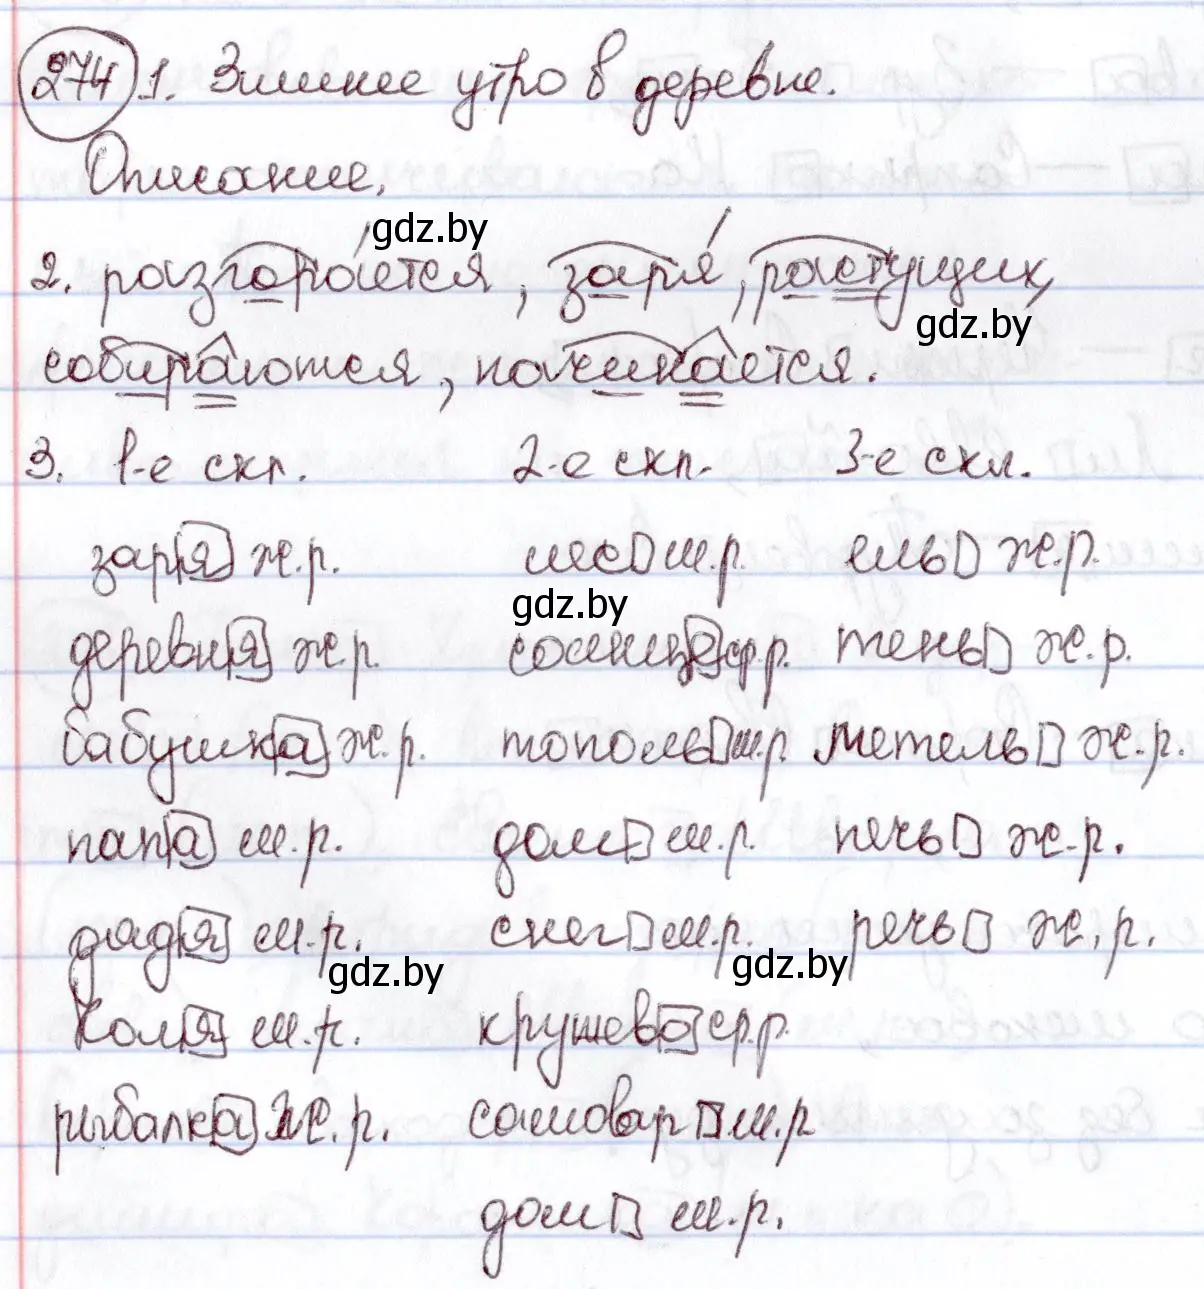 274 1. Зимнее утро в деревне.
Описание.
gdz.by
2. разгорается, заря, растущих,
gdz.by
собираются, начинается.
3. 1-е скл. 2-е скл. 3-е скл.
заря ж.р. лес м.р. ель ж.р.
gdz.by
деревня ж.р. солнце ср.р. тень ж.р.
бабушка ж.р. тополь м.р метель ж.р.
папа м.р. дом м.р. печь ж.р.
дядя м.р. снег м.р. речь ж.р.
gdz.by gdz.by
Коля м.р. кружево ср.р.
рыбалка ж.р. самовар м.р
дом м.р.